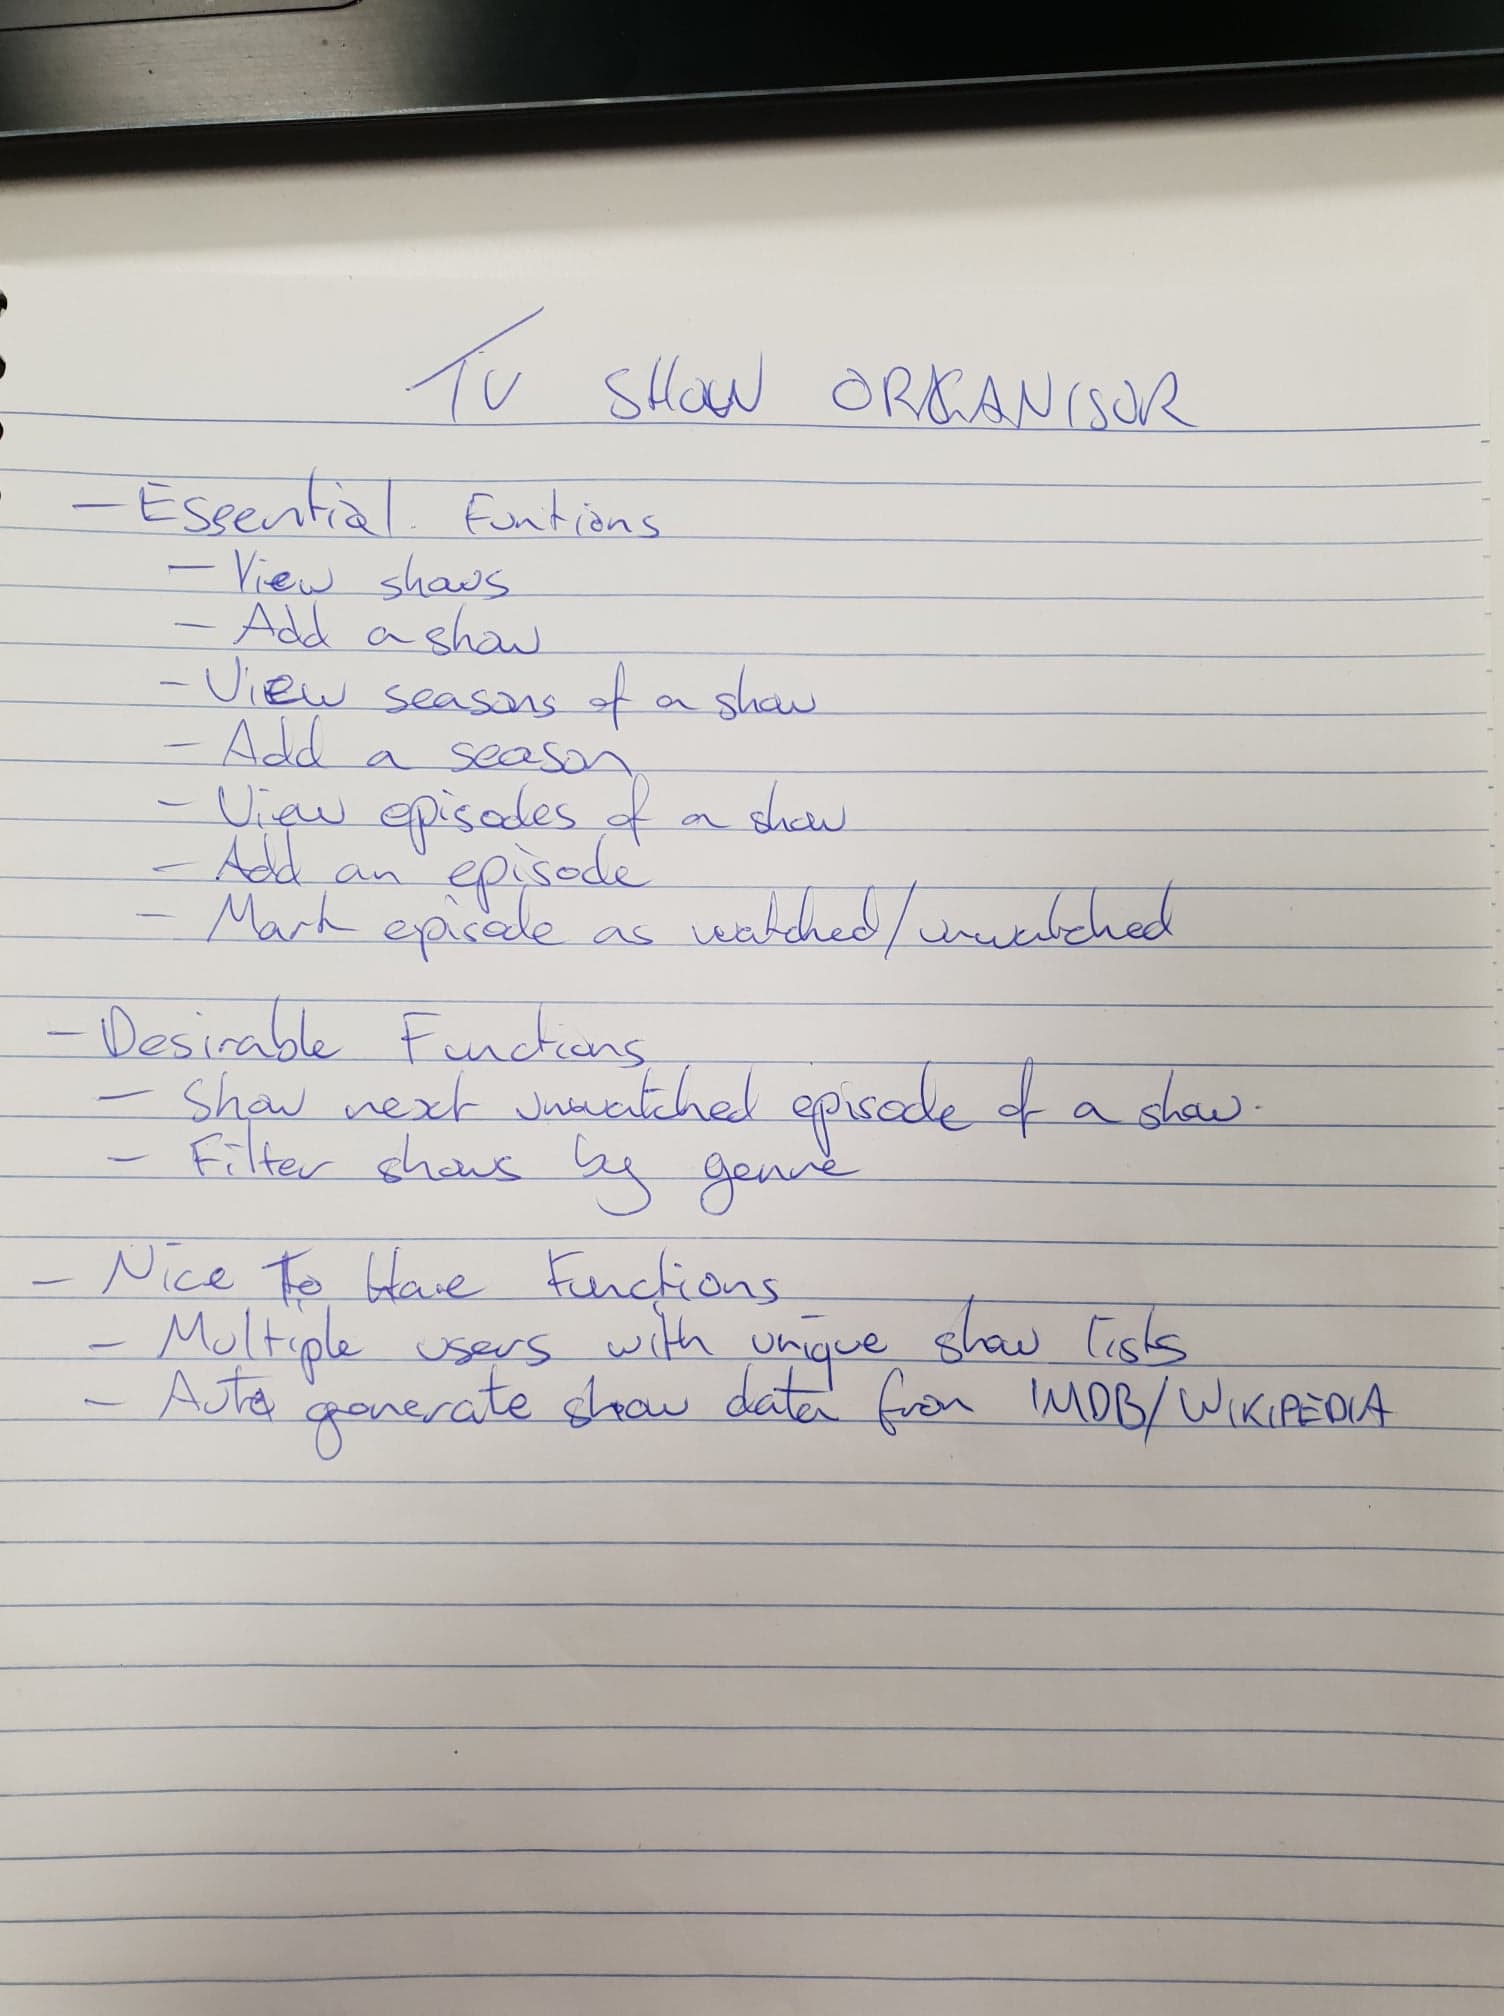 TV SHOW ORGANISOR
- Essential Funtions
- View shows
- Add a show
- View seasons of a show
- Add a season
- View episodes of a show
- Add an episode
- Mark episode as watched/unwatched
- Desirable Functions
- Show next unwatched episode of a show.
- Filter shows by genre
- Nice To Have Functions
- Multiple users with unique show lists
- Auto generate show data from IMDB/WIKIPEDIA